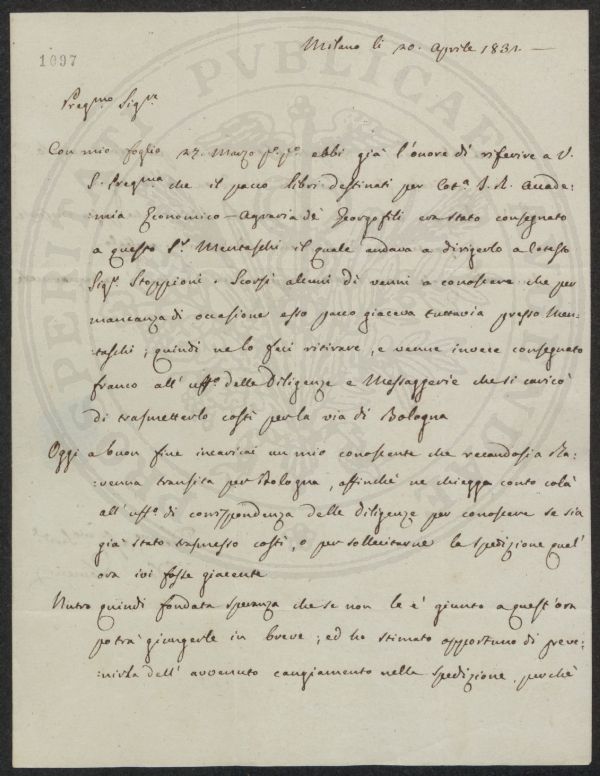 1097
Milano li 20. Aprile 1831. —
Pregmo Sigre
Con mio foglio 27. Marzo pº. pº. ebbi già l'onore di riferire a V.
S. Pregma che il pacco libri destinati per cotª. I. R. Accade:
mia Economico-Agraria dè Georgofili era stato consegnato
a questo Sr. Mentaschi il quale andava a dirigerlo a cotesto
Sigr. Stoppioni. Scorsi alcuni dì venni a conoscere che per
mancanza di occasione esso pacco giaceva tuttavia presso Men:
taschi; quindi ne lo feci ritirare, e venne invece consegnato
franco all' uffº. delle Diligenze e Messaggerie che si caricò
di trasmetterlo costì per la via di Bologna
Oggi a buon fine incaricai un mio conoscente che recandosi a Ra:
venna transita per Bologna, affinchè ne chiegga conto colà
all' uffº. di corrispondenza delle diligenze per conoscere se sia
già stato trasmesso costì, o per sollecitarne la spedizione qual'
ora ivi fosse giacente
Nutro quindi fondata speranza che se non le è giunto a quest'ora
potrà giungerle in breve; ed ho stimato opportuno di preve:
:nirla dell' avvenuto cangiamento nella spedizione, perchè
PROSPERITATI PVBLICAE